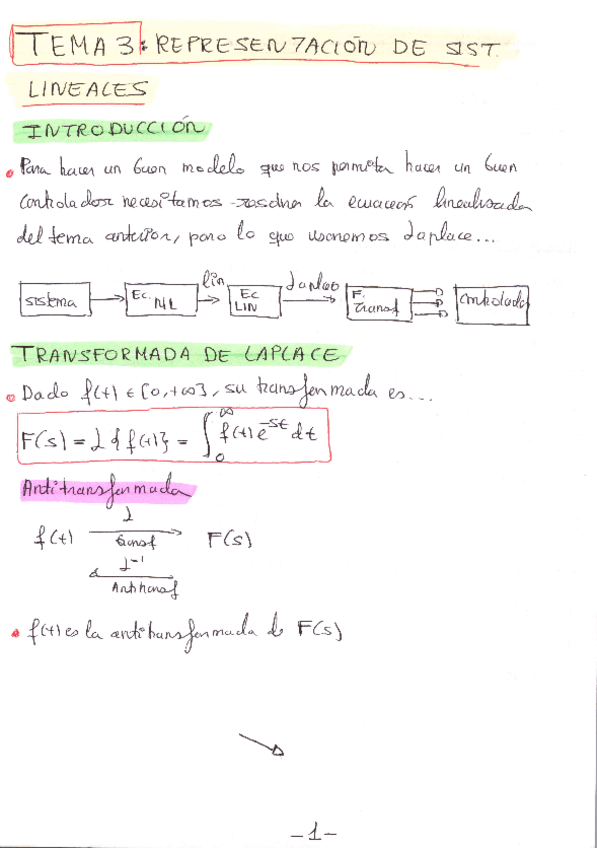 TEMA 3: REPRESENTACIÓN DE SIST.
LINEALES
INTRODUCCIÓN
• Para hacer un buen modelo que nos permita hacer un buen
controlador necesitamos resolver la ecuación linealizada
del tema anterior, para lo que usaremos Laplace...
sistema → Ec. NL → lin → Ec LIN → Laplace → F. Transf → Controlador
TRANSFORMADA DE LAPLACE
• Dado f(t) ∈ [0,+∞}, su transformada es...
F(s) = L{f(t)} = ∫₀^∞ f(t) e^-st dt
Antitransformada
L
f(t) → F(s)
transf
L^-1
Antitransf
• f(t) es la antitransformada de F(s)
-1-